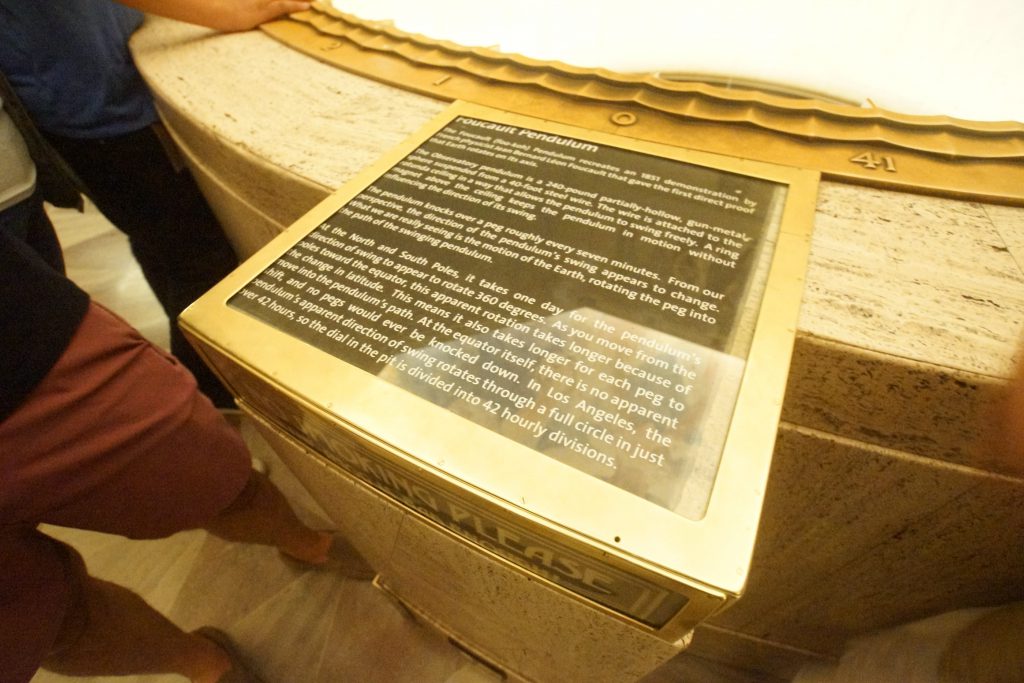 2 1 0 41
Foucault Pendulum
The Foucault (foo-koh) Pendulum recreates an 1851 demonstration by
French physicist Jean Bernard Léon Foucault that gave the first direct proof
that Earth rotates on its axis.
The Observatory pendulum is a 240-pound partially-hollow, gun-metal,
sphere suspended from a 40-foot steel wire. The wire is attached to the
rotunda ceiling in a way that allows the pendulum to swing freely. A ring
magnet above the ceiling keeps the pendulum in motion without
influencing the direction of its swing.
The pendulum knocks over a peg roughly every seven minutes. From our
perspective, the direction of the pendulum's swing appears to change.
What we are really seeing is the motion of the Earth, rotating the peg into
the path of the swinging pendulum.
At the North and South Poles, it takes one day for the pendulum's
direction of swing to appear to rotate 360 degrees. As you move from the
poles toward the equator, this apparent rotation takes longer because of
the change in latitude. This means it also takes longer for each peg to
move into the pendulum's path. At the equator itself, there is no apparent
shift, and no pegs would ever be knocked down. In Los Angeles, the
pendulum's apparent direction of swing rotates through a full circle in just
over 42 hours, so the dial in the pit is divided into 42 hourly divisions.
PLEASE